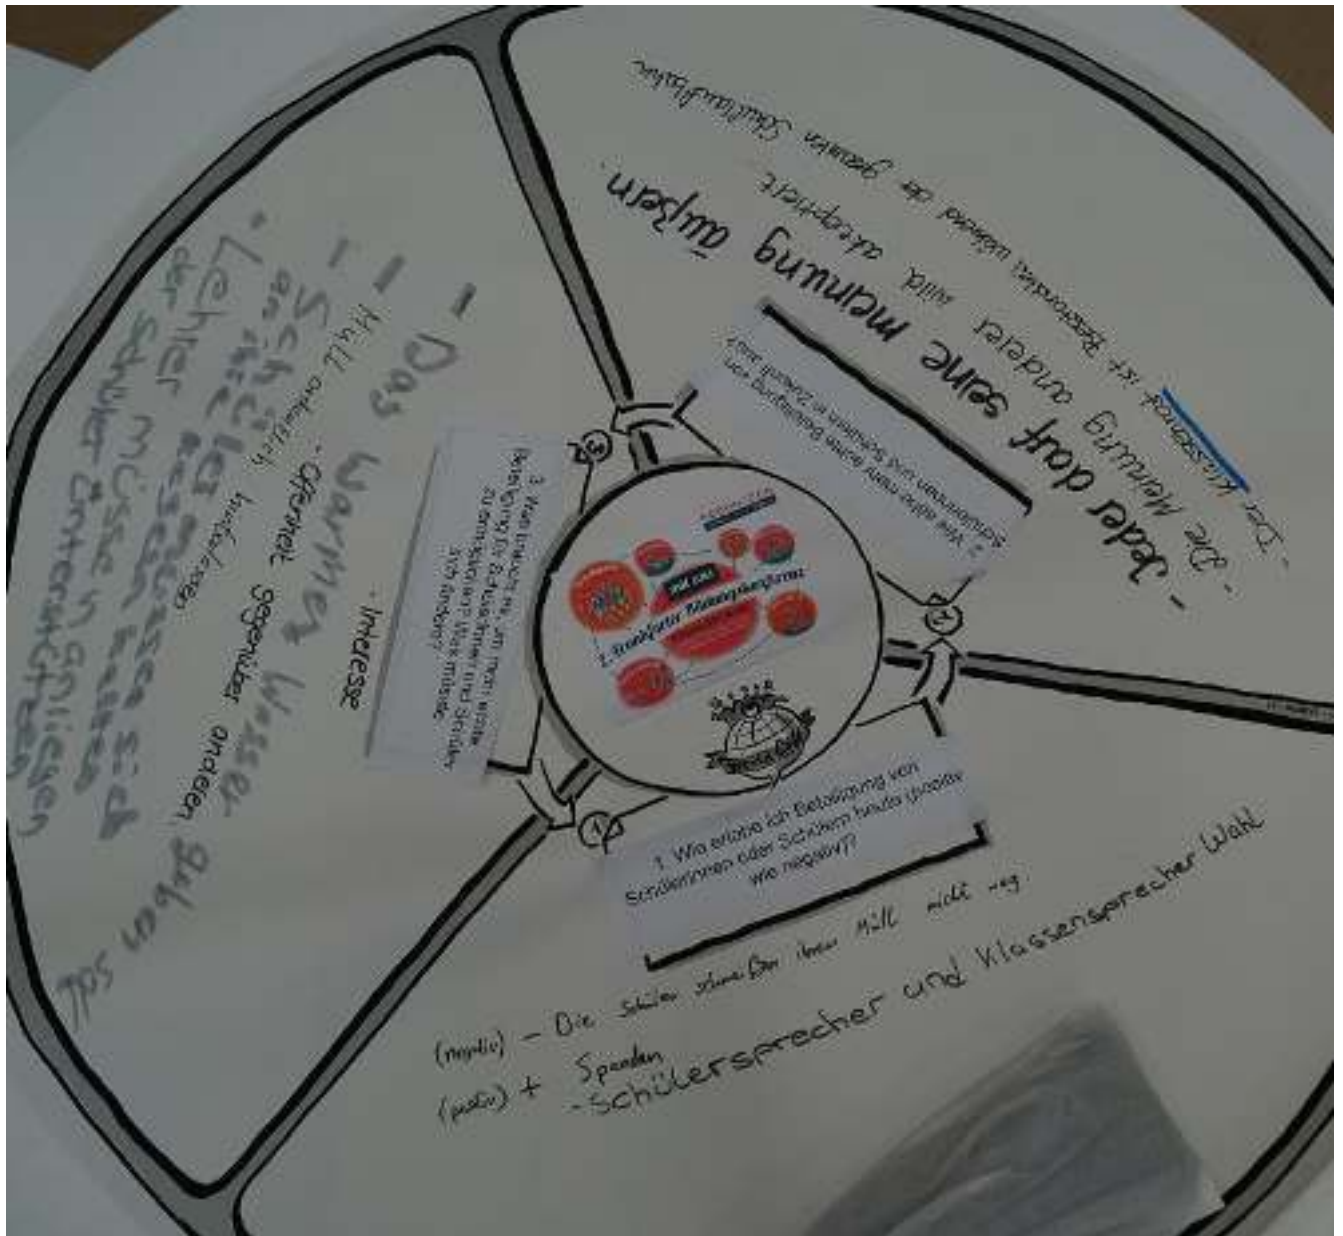 2. Frankfurter Bildungskongress
1. Wie erlebe ich Beteiligung von
Schülerinnen oder Schülern heute (positiv
wie negativ)?
(negativ) - Die Schüler schmeißen ihren Müll nicht weg.
(positiv) + Spenden
- Schülersprecher und Klassensprecher Wahl
1
2. Wie sähe mehr echte Beteiligung von
Schülerinnen und Schülern in Zukunft aus?
- Jeder darf seine meinung äußern.
- Die Meinung anderer wird akzeptiert.
- Der Klassenrat ist Bestandteil während der gesamten Schullaufbahn
2
3. Was braucht es, um mehr echte
Beteiligung für Schülerinnen und Schüler
zu ermöglichen? Was müsste
sich ändern?
3
- Interesse
- Offenheit gegenüber anderen
- Das warmes Wasser geben soll
- Müll ordentlich hinterlassen
- Schüler
an ihre
- Lehrer müssen Anliegen
der Schüler unterstützen